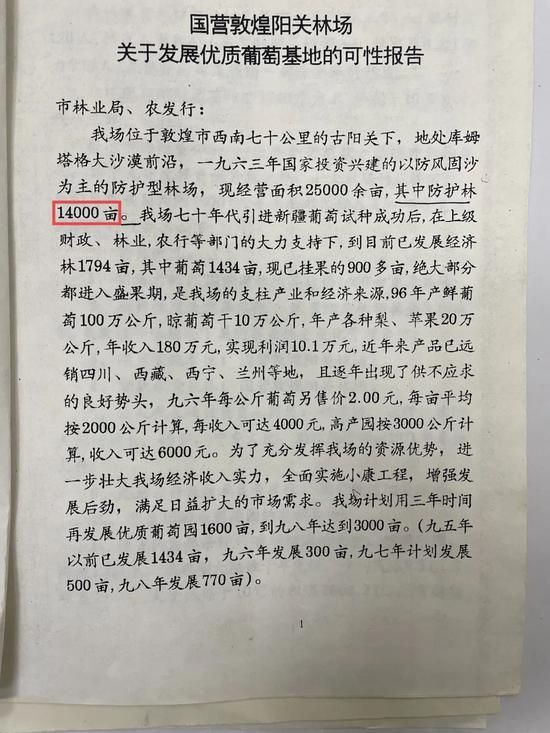 国营敦煌阳关林场
关于发展优质葡萄基地的可性报告
市林业局、农发行：
我场位于敦煌市西南七十公里的古阳关下，地处库姆
塔格大沙漠前沿，一九六三年国家投资兴建的以防风固沙
为主的防护型林场，现经营面积25000余亩,其中防护林
14000亩。我场七十年代引进新疆葡萄试种成功后,在上级
财政、林业,农行等部门的大力支持下,到目前已发展经济
林1794亩,其中葡萄1434亩,现已挂果的900多亩,绝大部分
都进入盛果期,是我场的支柱产业和经济来源,96年产鲜葡
萄100万公斤,晾葡萄干10万公斤,年产各种梨、苹果20万
公斤,年收入180万元,实现利润10.1万元,近年来产品已远
销四川、西藏、西宁、兰州等地，且逐年出现了供不应求
的良好势头，九六年每公斤葡萄另售价2.00元,每亩平均
按2000公斤计算,每亩收入可达4000元,高产园按3000公斤计
算,收入可达6000元。为了充分发挥我场的资源优势，进
一步壮大我场经济收入实力，全面实施小康工程，增强发
展后劲，满足日益扩大的市场需求。我场计划用三年时间
再发展优质葡萄园1600亩,到九八年达到3000亩。(九五年
以前已发展1434亩，九六年发展300亩,九七年计划发展
500亩,九八年发展770亩)。
1